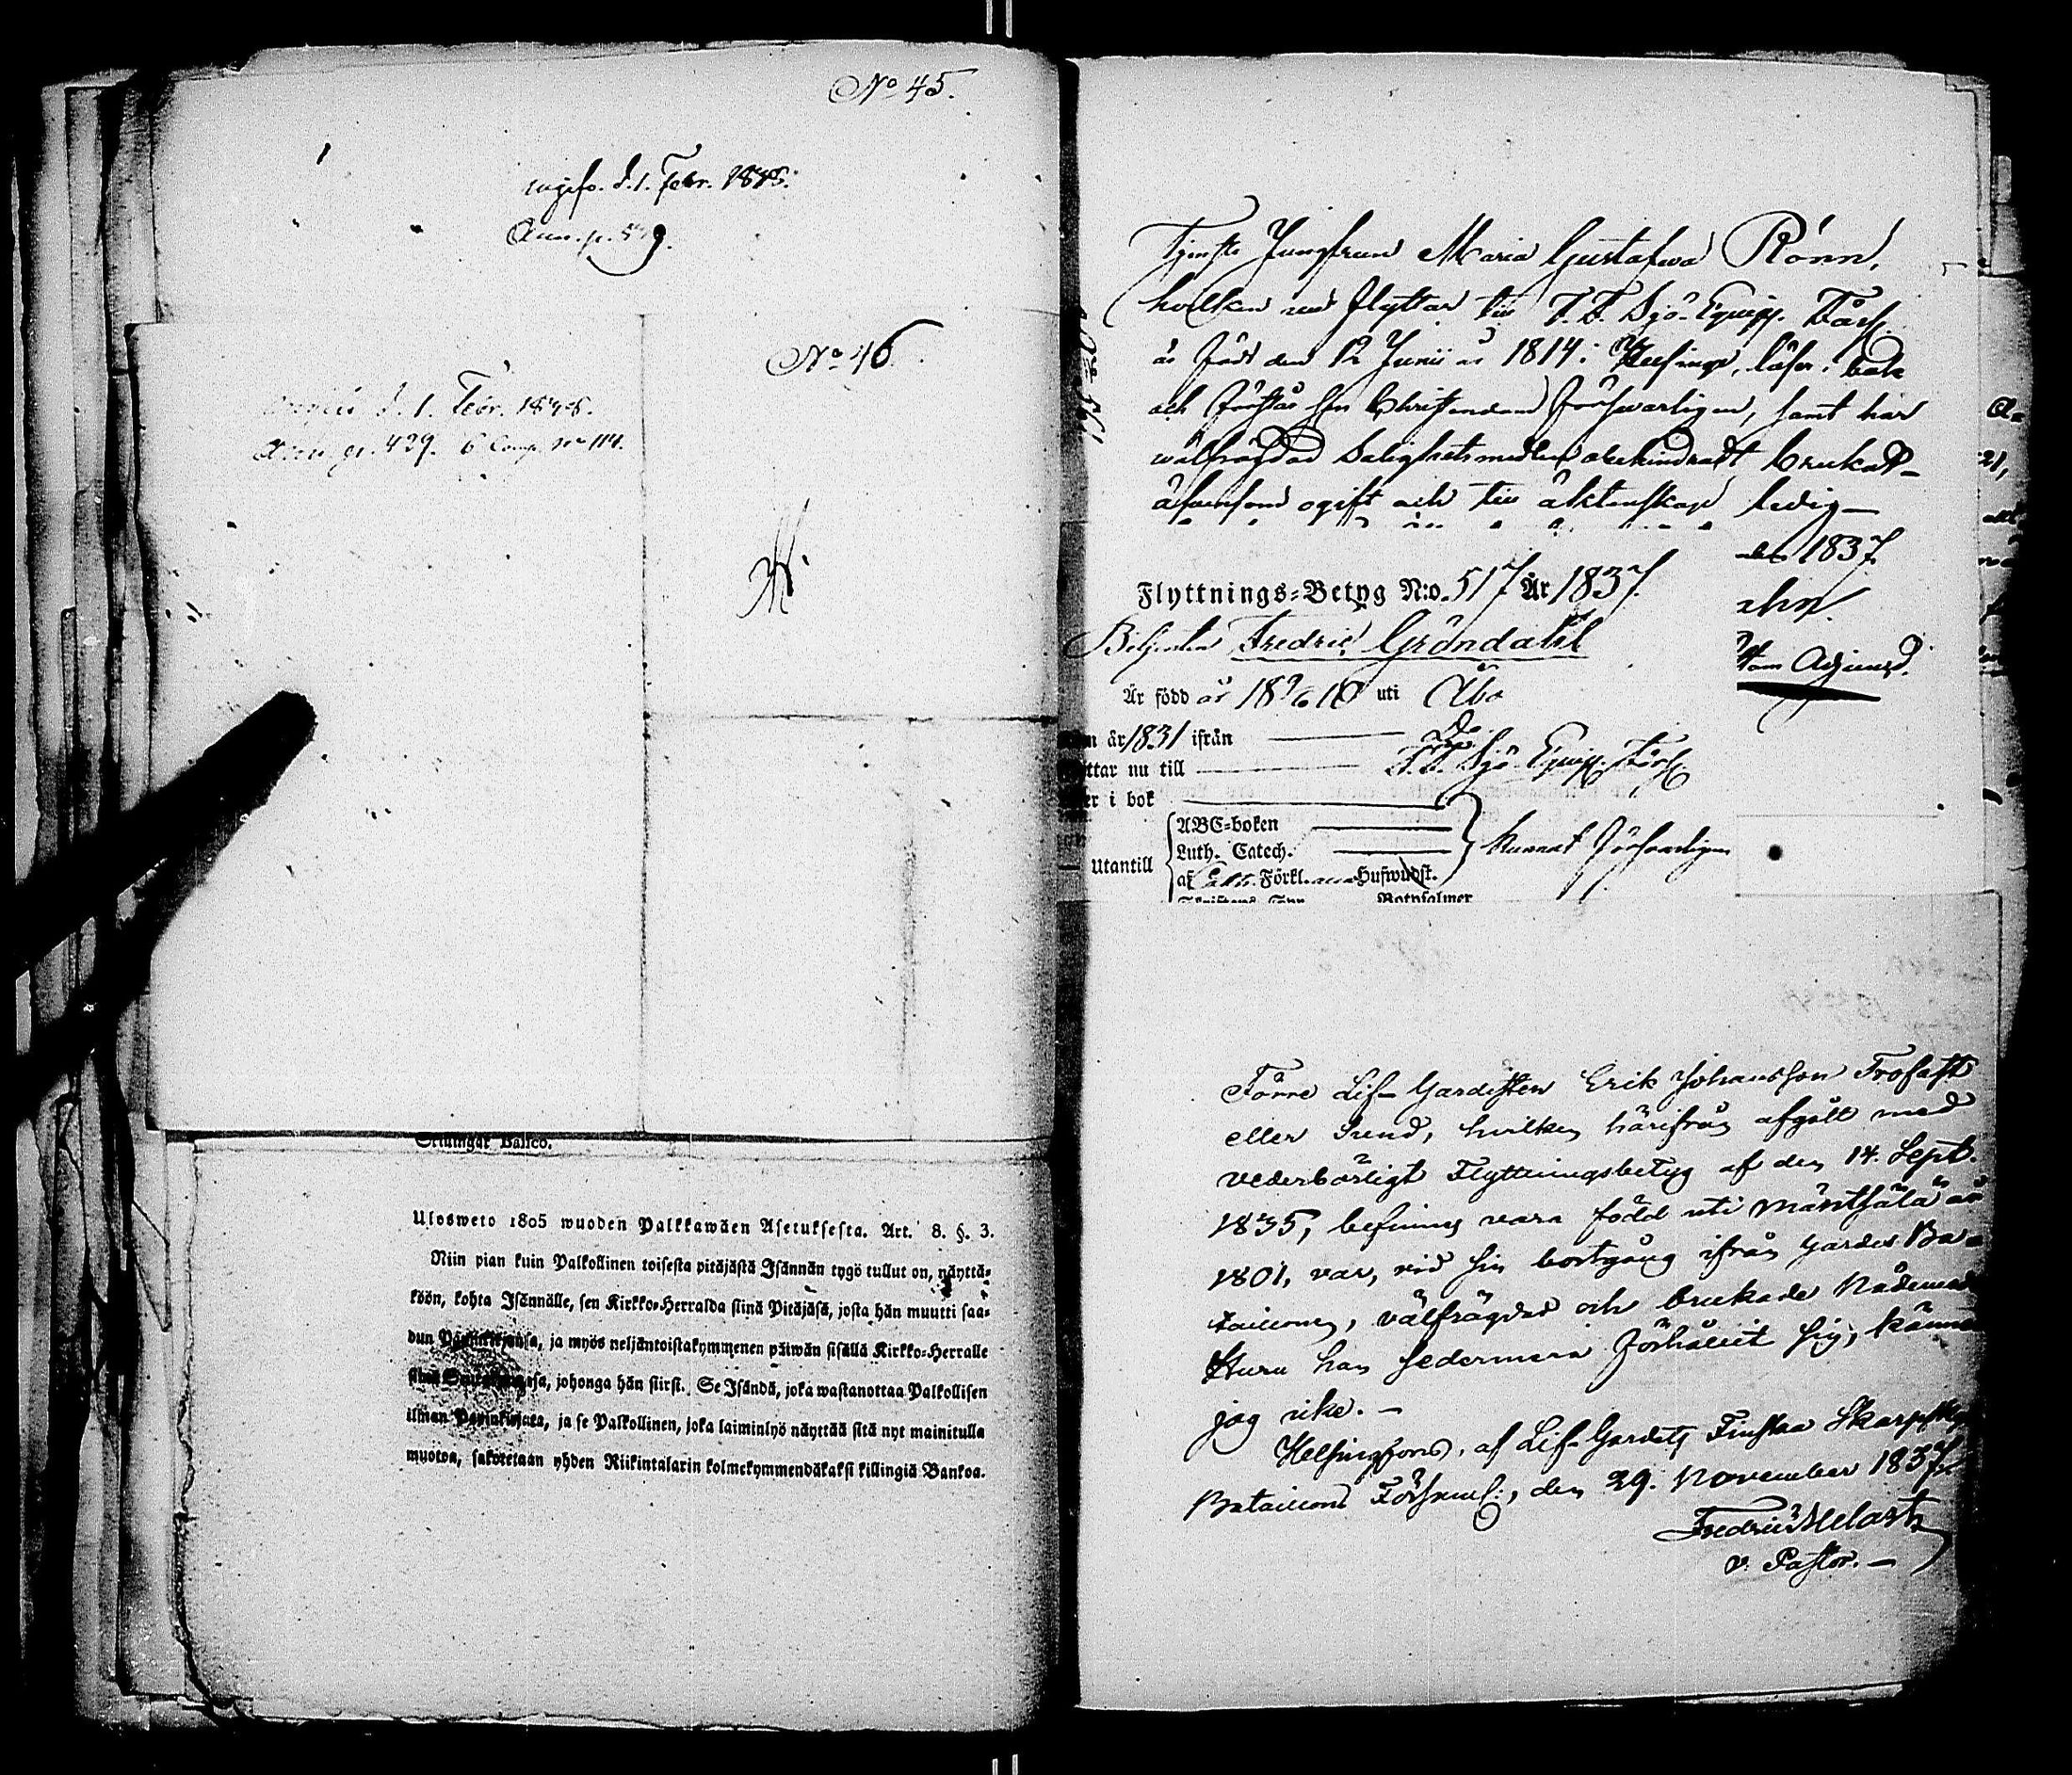 No 45.
d. 1. Febr. 1838.
No 46.
d. 1. Febr. 1838.
p. 429. 6 Comp. No 114.
Skillingar Banco.
Ulosweto 1805 wuoden Palkkawäen Asetuksesta. Art. 8. §. 3.
Niin pian kuin Palkollinen toisesta pitäjästä Isännän tygö tullut on, näyttä-
köön, kohta Isännälle, sen Kirkko-Herralda siinä Pitäjäsä, josta hän muutti saa-
dun Papinkirjansa, ja myös neljäntoistakymmenen päiwän sisällä Kirkko-Herralle
siinä Seurakunnasa, johonga hän siirst. Se Isändä, joka wastanottaa Palkollisen
ilman Papinkirjata, ja se Palkollinen, joka laiminlyö näyttää sitä nyt mainitulla
muotoa, sakotetaan yhden Riikintalarin kolmekymmendäkaksi killingiä Bankoa.
Tjenste Jungfrun Maria Gustafwa Rönn,
hvilken nu flyttar till F. F. Sjö-Equip. Förs.
är född den 12 Junii år 1814 i Helsinge, läser i bok
och förstår sin Christendom försvarligen, samt har
wälfrägdad Salighetsmedlen obehindradt brukat
äfvensom ogift och till äktenskap ledig
1837.
Adjunct.
Flyttnings-Betyg N:o 517 År 1837.
Betjenten Fredric Gröndahl
Är född år 18 10 uti Åbo
år 1831 ifrån Do
ttar nu till F. F. Sjö-Equip. Förs.
er i bok
Utantill
ABC-boken
Luth. Catech.
af Förkl. Hufwudst.
kunnat försvarligen
Botpsalmer
Förre Lif-Gardisten Erik Johansson Trofast
eller Sund, hvilken härifrån afgått med
vederbörligt Flyttningsbetyg af den 14. Sept.
1835, befinnes vara född uti Mäntsälä år
1801, var, vid sin bortgång ifrån Gardes Ba-
taillonen, välfrägdad och brukade Nådemed
Huru han sedermera förhållit sig, känner
jag icke. —
Helsingfors, af Lif-Gardets Finska Skarpsky
Bataillons Församl:, den 29. November 1837.
Fredric
v. Pastor. —